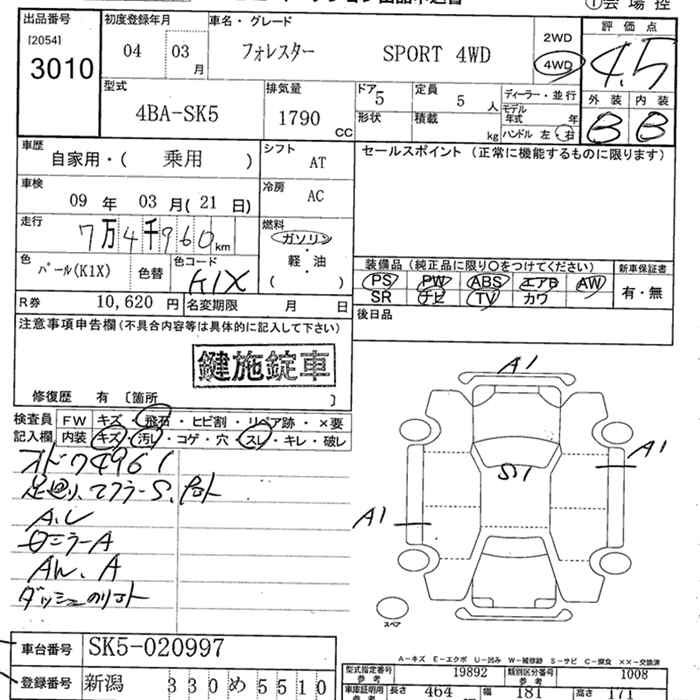 ①会場控
出品番号 初度登録年月 車名・グレード 評価点
[2054]
3010
04 03月 フォレスター SPORT 4WD 2WD 4WD 4.5
型式 排気量 ドア 定員 ディーラー・並行 外装 内装
4BA-SK5 1790 CC 5 5人 モデル年式 年 B B
形状 積載 kg ハンドル 左・右
車歴 自家用・(乗用) シフト AT セールスポイント (正常に機能するものに限ります)
車検 09年 03月(21日) 冷房 AC
走行 7万4千960km 燃料 ガソリン・軽・油
( )
色 パール(K1X) 色替 色コード K1X
装備品 (純正品に限り○をつけてください) 新車保証書
PS PW ABS エアB AW 有・無
SR ナビ TV カワ
R券 10,620円 名変期限 月 日 後日品
注意事項申告欄(不具合内容等は具体的に記入して下さい)
鍵施錠車
修復歴 有 〔箇所 〕
検査員 FW キズ・飛石・ヒビ割・リペア跡・×要
記入欄 内装 キズ・汚レ・コゲ・穴・スレ・キレ・破レ
オド74961
足回り、マフラーS、
A、
ミラーA
A
ダッシュ
A1
A1
S1
A1
スペア
車台番号 SK5-020997
登録番号 新潟 330め5510
A-キズ E-エクボ U-凹み W-補修跡 S-サビ C-腐食 ××-交換済
型式指定番号 参考 19892 類別区分番号 参考 1008
車庫証明用 参考 長さ 464 幅 181 高さ 171